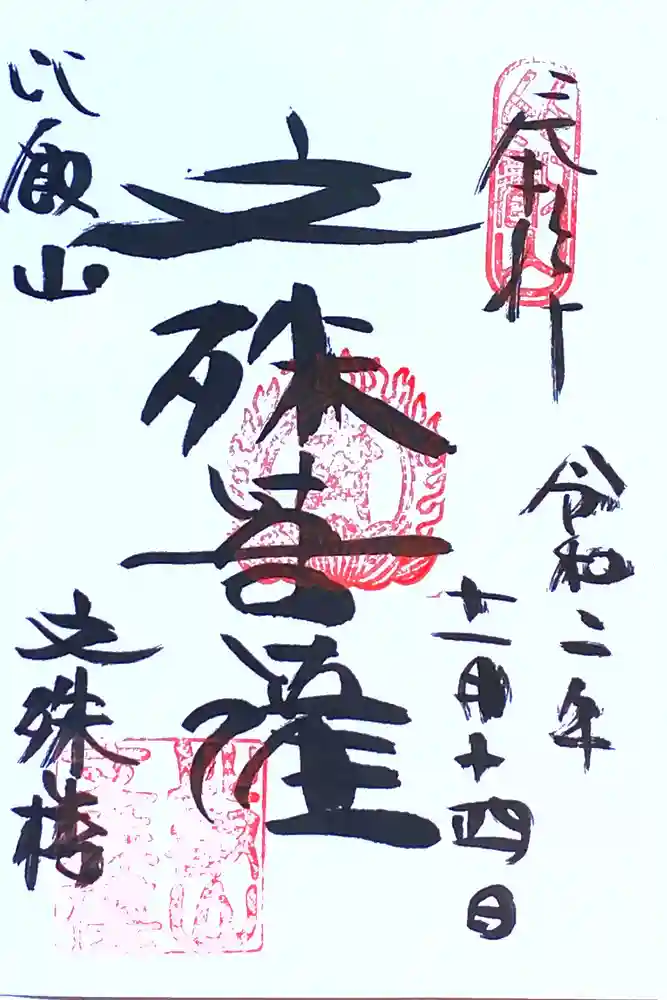 奉拝
令和二年
十一月十四日
文殊菩薩
比叡山
文殊楼